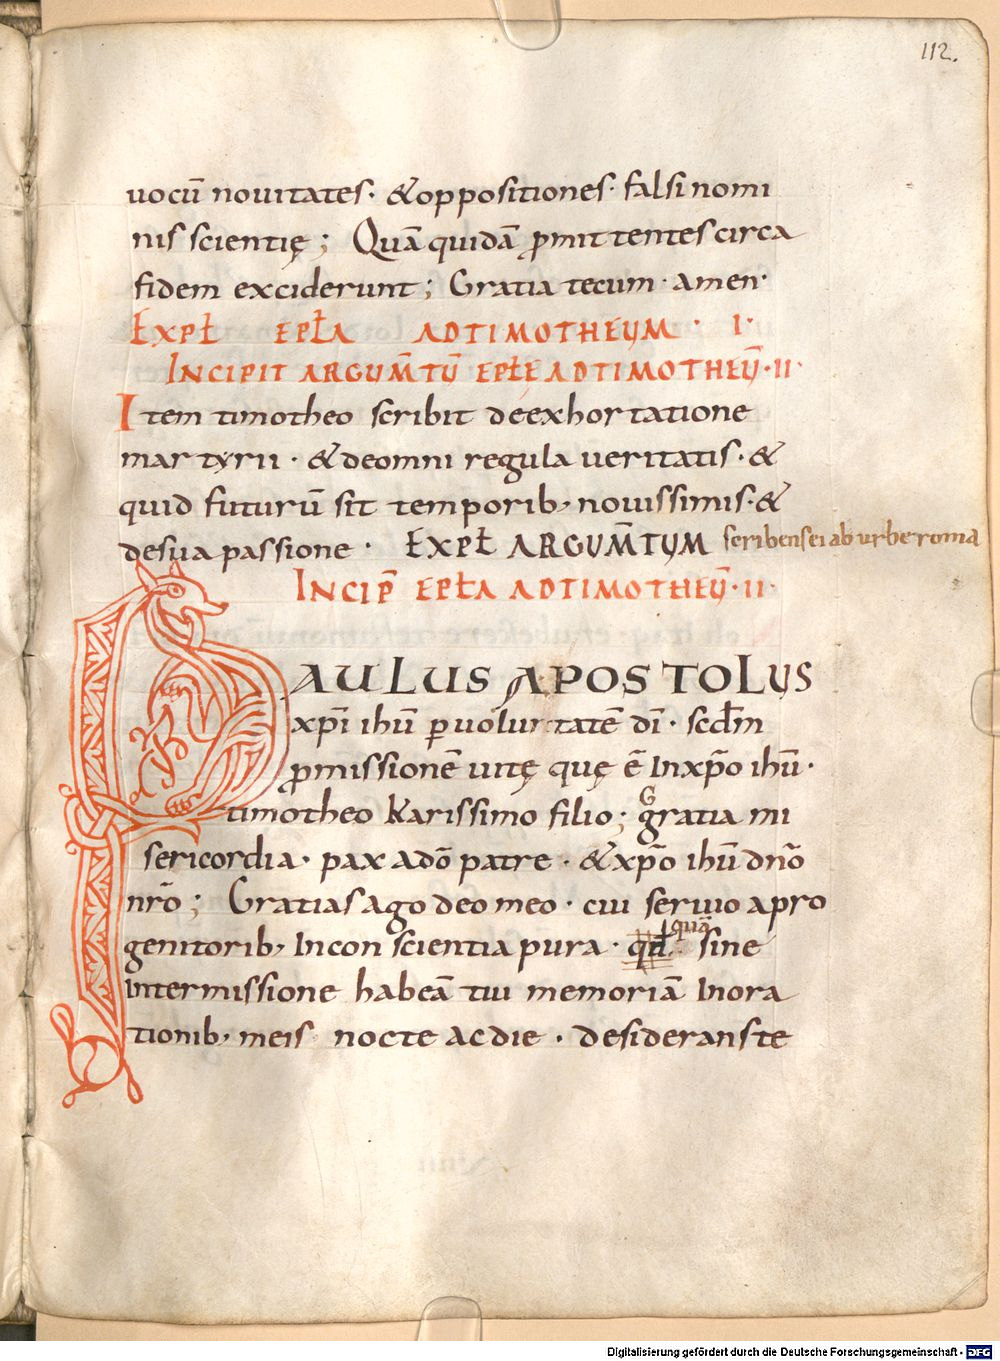 112.
uocū nouitates· &oppositiones· falsi nomi
nis scientię; Quā quidā ꝓmittentes circa
fidem exciderunt; Gratia tecum· amen·
EXPƗ EPƗA ADTIMOTHEUM· I·
INCIPIT ARGUM̅TU̅ EPƗE ADTIMOTHEU̅·II·
Item timotheo scribit deexhortatione
martyrii· &deomni regula ueritatis·&
quid futurū sit temporib; nouissimis·&
desua passione· EXPƗ ARGUM̅TUM scribens ei ab urbe roma
INCIP̅ EPƗA ADTIMOTHEU̅·II·
PAULUS APOSTOLUS
xp̅i ihū ꝑ uoluntatē dī· scđm
ꝓmissionē uitę quę ē Inxp̅o ihū·
timotheo karissimo filio; G gratia mi
sericordia· pax adō patre· &xp̅o ihū dn̅o
nr̅o; Gratias ago deo meo· cui seruio apro
genitorib; Incon scientia pura· qđ quā sine
Intermissione habeā tui memoriā Inora
tionib; meis nocte acdie· desiderans te
Digitalisierung gefördert durch die Deutsche Forschungsgemeinschaft - DFG